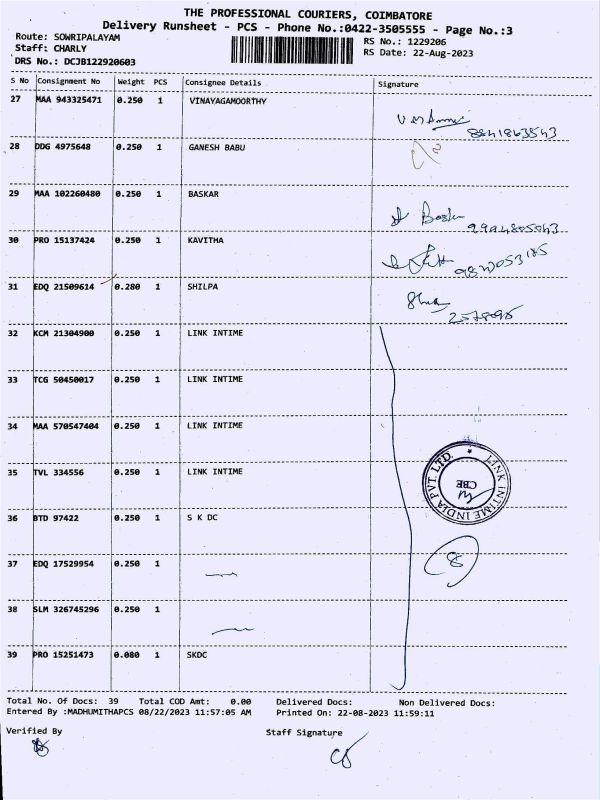 THE PROFESSIONAL COURIERS, COIMBATORE
Delivery Runsheet - PCS - Phone No.:0422-3505555 - Page No.:3
Route: SOWRIPALAYAM
Staff: CHARLY
DRS No.: DCJB122920603
RS No.: 1229206
RS Date: 22-Aug-2023
S No Consignment No Weight PCS Consignee Details Signature
27 MAA 943325471 0.250 1 VINAYAGAMOORTHY
28 DDG 4975648 0.250 1 GANESH BABU
29 MAA 102260480 0.250 1 BASKAR
30 PRO 15137424 0.250 1 KAVITHA
31 EDQ 21509614 0.280 1 SHILPA
32 KCM 21304900 0.250 1 LINK INTIME
33 TCG 50450017 0.250 1 LINK INTIME
34 MAA 570547404 0.250 1 LINK INTIME
35 TVL 334556 0.250 1 LINK INTIME
LINK INTIME INDIA PVT. LTD.
CBE
36 BTD 97422 0.250 1 S K DC
37 EDQ 17529954 0.250 1
8
38 SLM 326745296 0.250 1
39 PRO 15251473 0.080 1 SKDC
Total No. Of Docs: 39 Total COD Amt: 0.00 Delivered Docs: Non Delivered Docs:
Entered By :MADHUMITHAPCS 08/22/2023 11:57:05 AM Printed On: 22-08-2023 11:59:11
Verified By Staff Signature